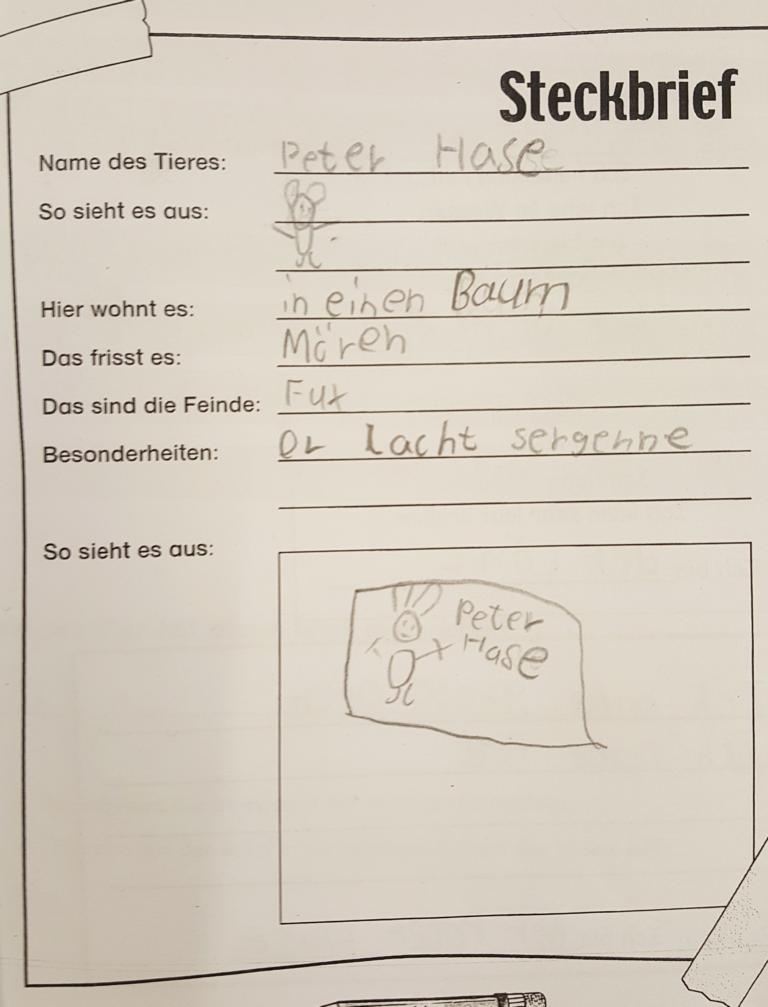 Steckbrief
Name des Tieres: Peter Hase
So sieht es aus:
Hier wohnt es: in einen Baum
Das frisst es: Mören
Das sind die Feinde: Fux
Besonderheiten: Er lacht sergenne
So sieht es aus:
Peter
Hase